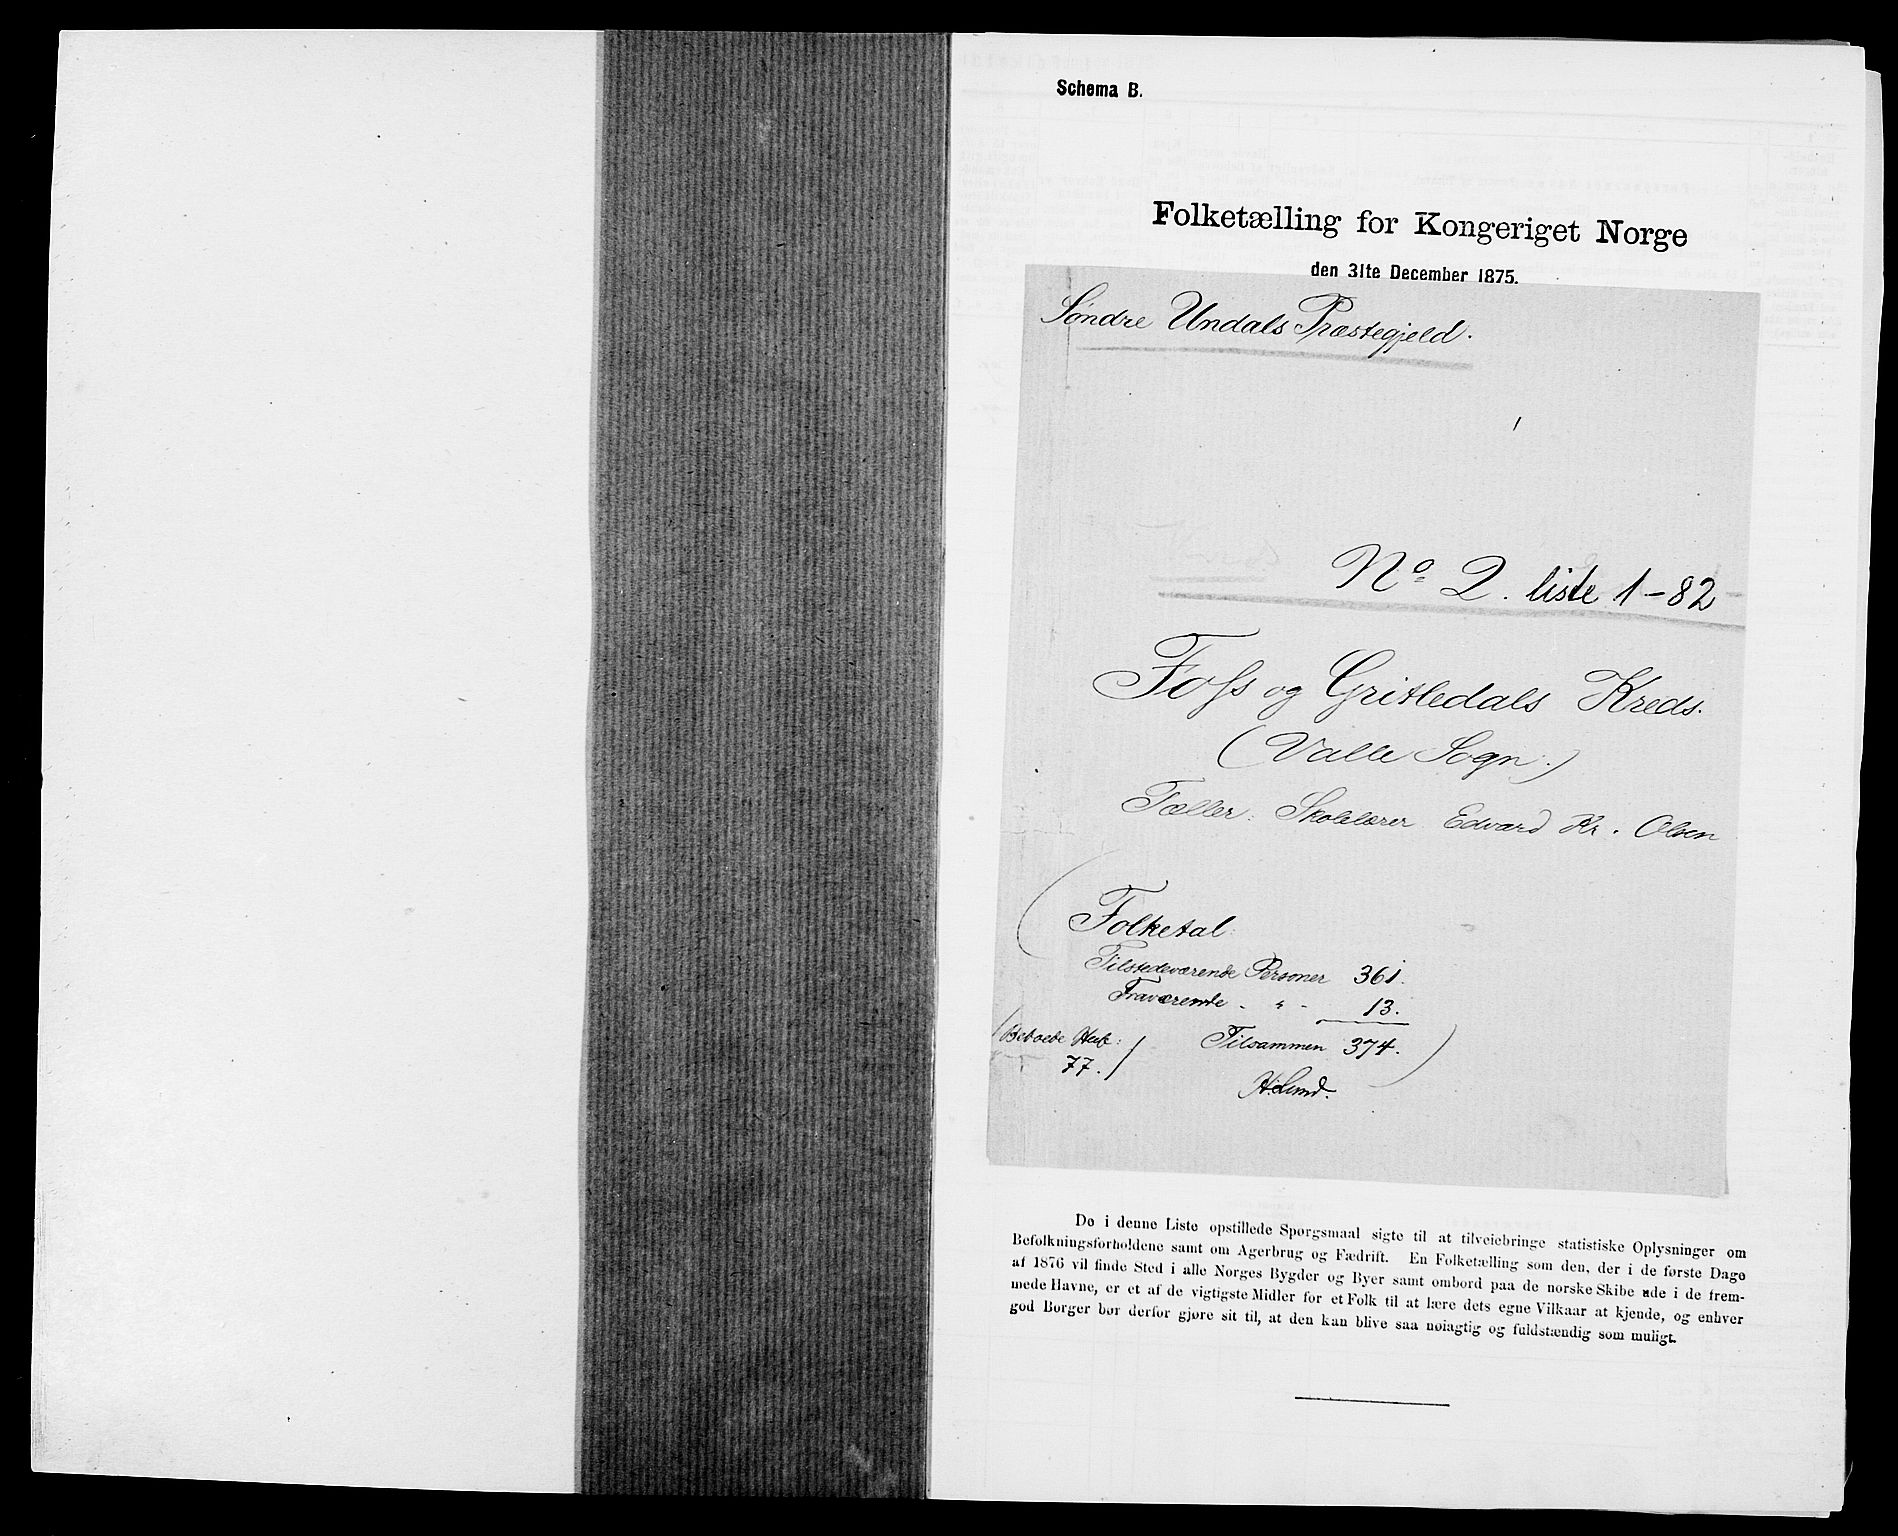 Schema B.
Folketælling for Kongeriget Norge
den 31te December 1875.
Søndre Undals Præstegjeld.
No 2. liste 1-82
Foss og Gritledals Kreds.
(Valle Sogn.)
Tæller: Skolelærer Edvard Kr. Olsen
Folketal:
Tilstedeværende Personer 361.
Fraværende - " - 13.
(Beboede Huse: Tilsammen 374.)
77.)
H. Lund.
De i denne Liste opstillede Spørgsmaal sigte til at tilveiebringe statistiske Oplysninger om
Befolkningsforholdene samt om Agerbrug og Fædrift. En Folketælling som den, der i de første Dage
af 1876 vil finde Sted i alle Norges Bygder og Byer samt ombord paa de norske Skibe ude i de frem-
mede Havne, er et af de vigtigste Midler for et Folk til at lære dets egne Vilkaar at kjende, og enhver
god Borger bør derfor gjøre sit til, at den kan blive saa nøiagtig og fuldstændig som muligt.